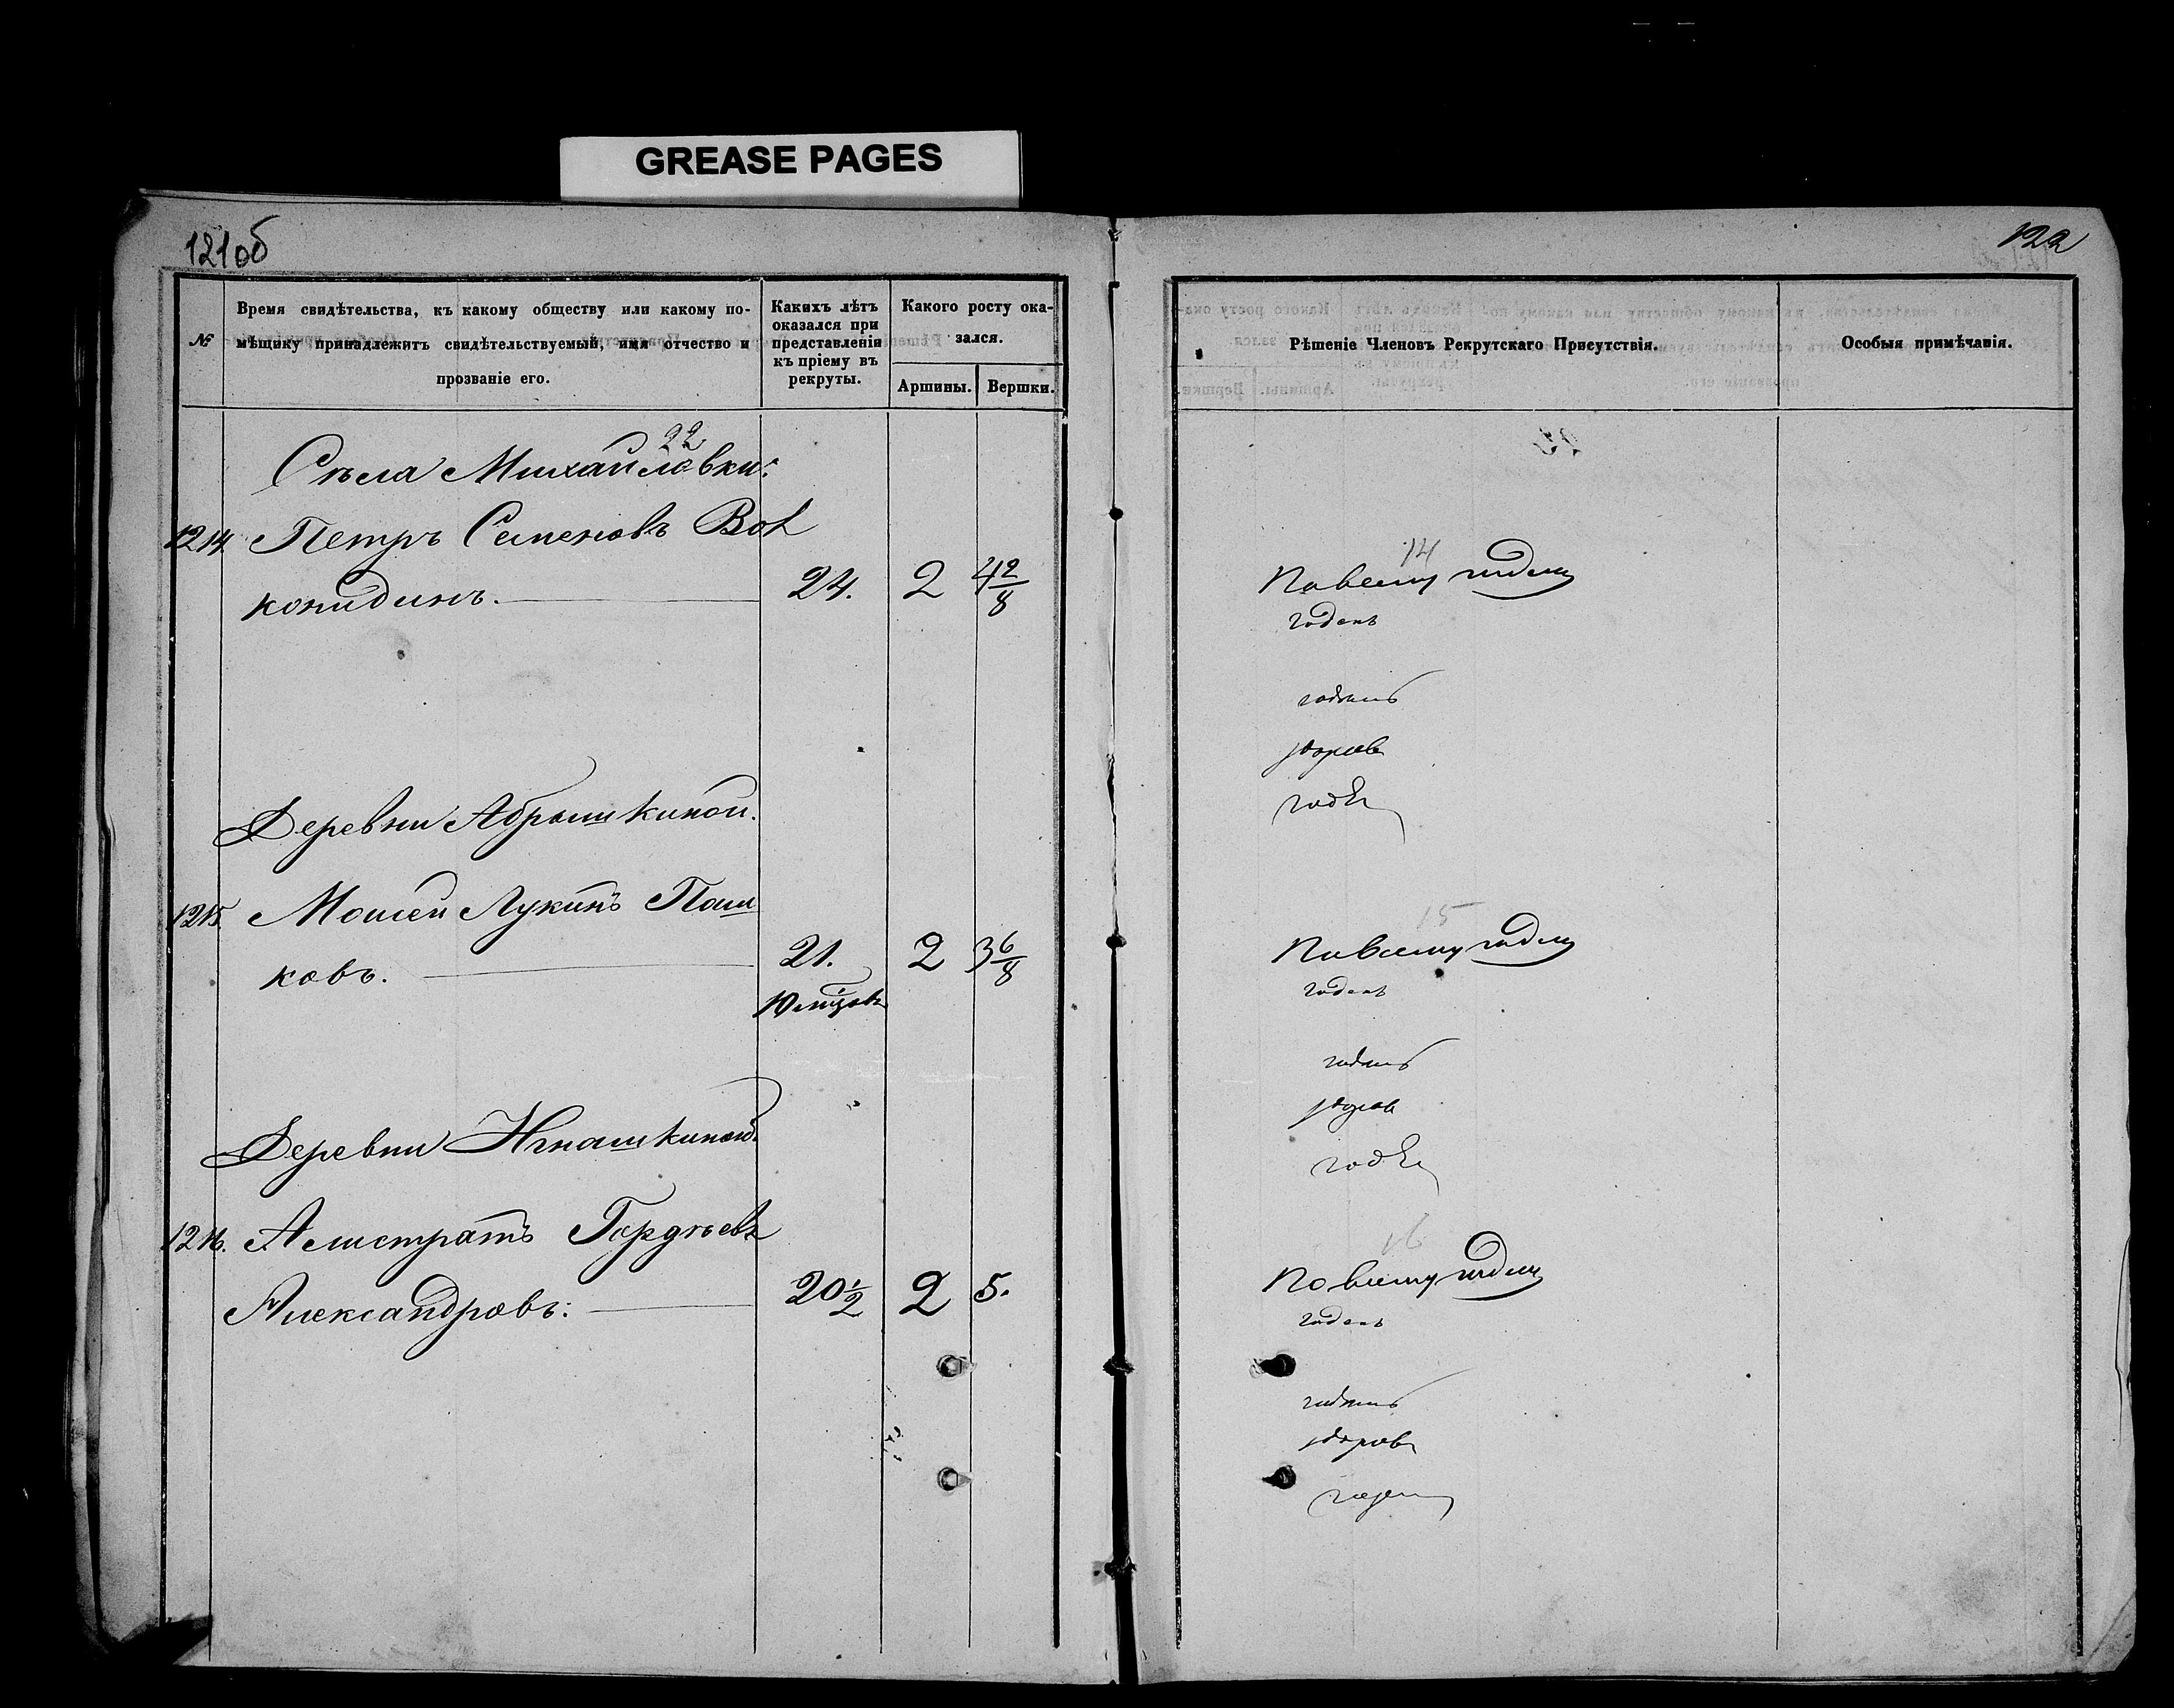 GREASE PAGES
121об
№
Время свидѣтельства, къ какому обществу или какому по-
мѣщику принадлежитъ свидѣтельствуемый, имя отчество и
прозваніе его.
Какихъ лѣтъ
оказался при
представленіи
къ пріему въ
рекруты.
Какого росту ока-
зался.
Аршины.
Вершки.
22
Села Михайловки:
1214. Петръ Семеновъ Вол
конидинъ. 24. 2 4 2/8
Деревни Абрашкиной.
1215. Моисей Лукинъ Паш
ковъ. 21. 2 3 6/8
Деревни Игнашкиной.
1216. Алистратъ Гордѣевъ
Александровъ: 20 1/2 2 5.
122
Рѣшеніе Членовъ Рекрутскаго Присутствія.
Особыя примѣчанія.
14
По всему годенъ
годенъ
годенъ
здоровъ
годен
15
По всему годенъ
годенъ
годенъ
здоровъ
годен
16
По всему годенъ
годенъ
годенъ
здоровъ
годен